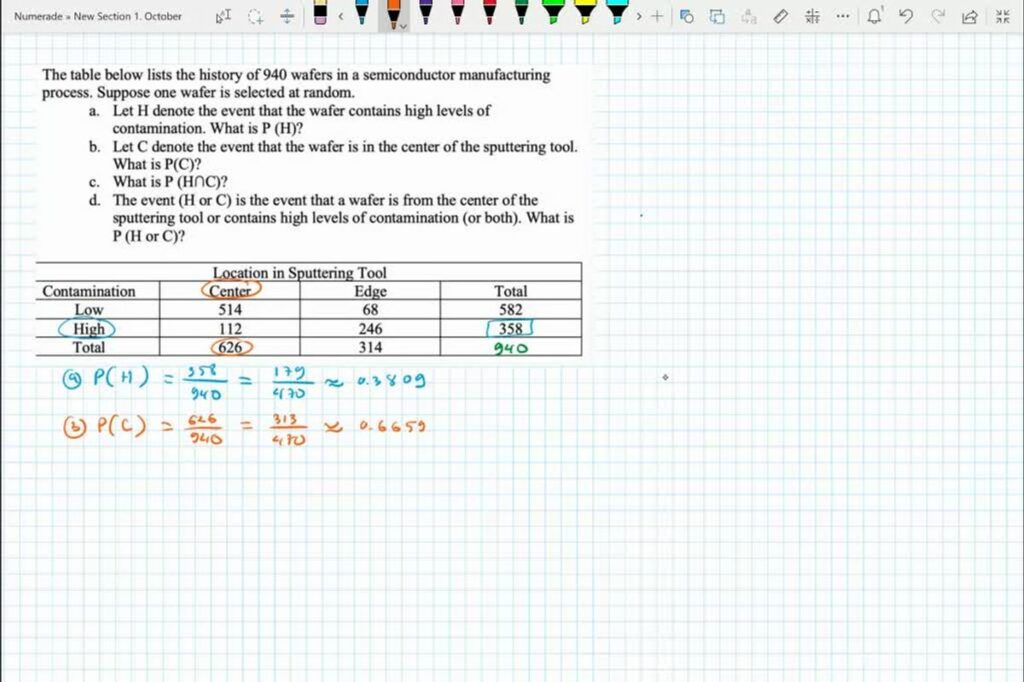 Numerade » New Section 1. October
The table below lists the history of 940 wafers in a semiconductor manufacturing
process. Suppose one wafer is selected at random.
a. Let H denote the event that the wafer contains high levels of
contamination. What is P (H)?
b. Let C denote the event that the wafer is in the center of the sputtering tool.
What is P(C)?
c. What is P (H∩C)?
d. The event (H or C) is the event that a wafer is from the center of the
sputtering tool or contains high levels of contamination (or both). What is
P (H or C)?
Location in Sputtering Tool
Contamination Center Edge Total
Low 514 68 582
High 112 246 358
Total 626 314 940
(a) P(H) = 358/940 = 179/470 ≈ 0.3809
(b) P(C) = 626/940 = 313/470 ≈ 0.6659